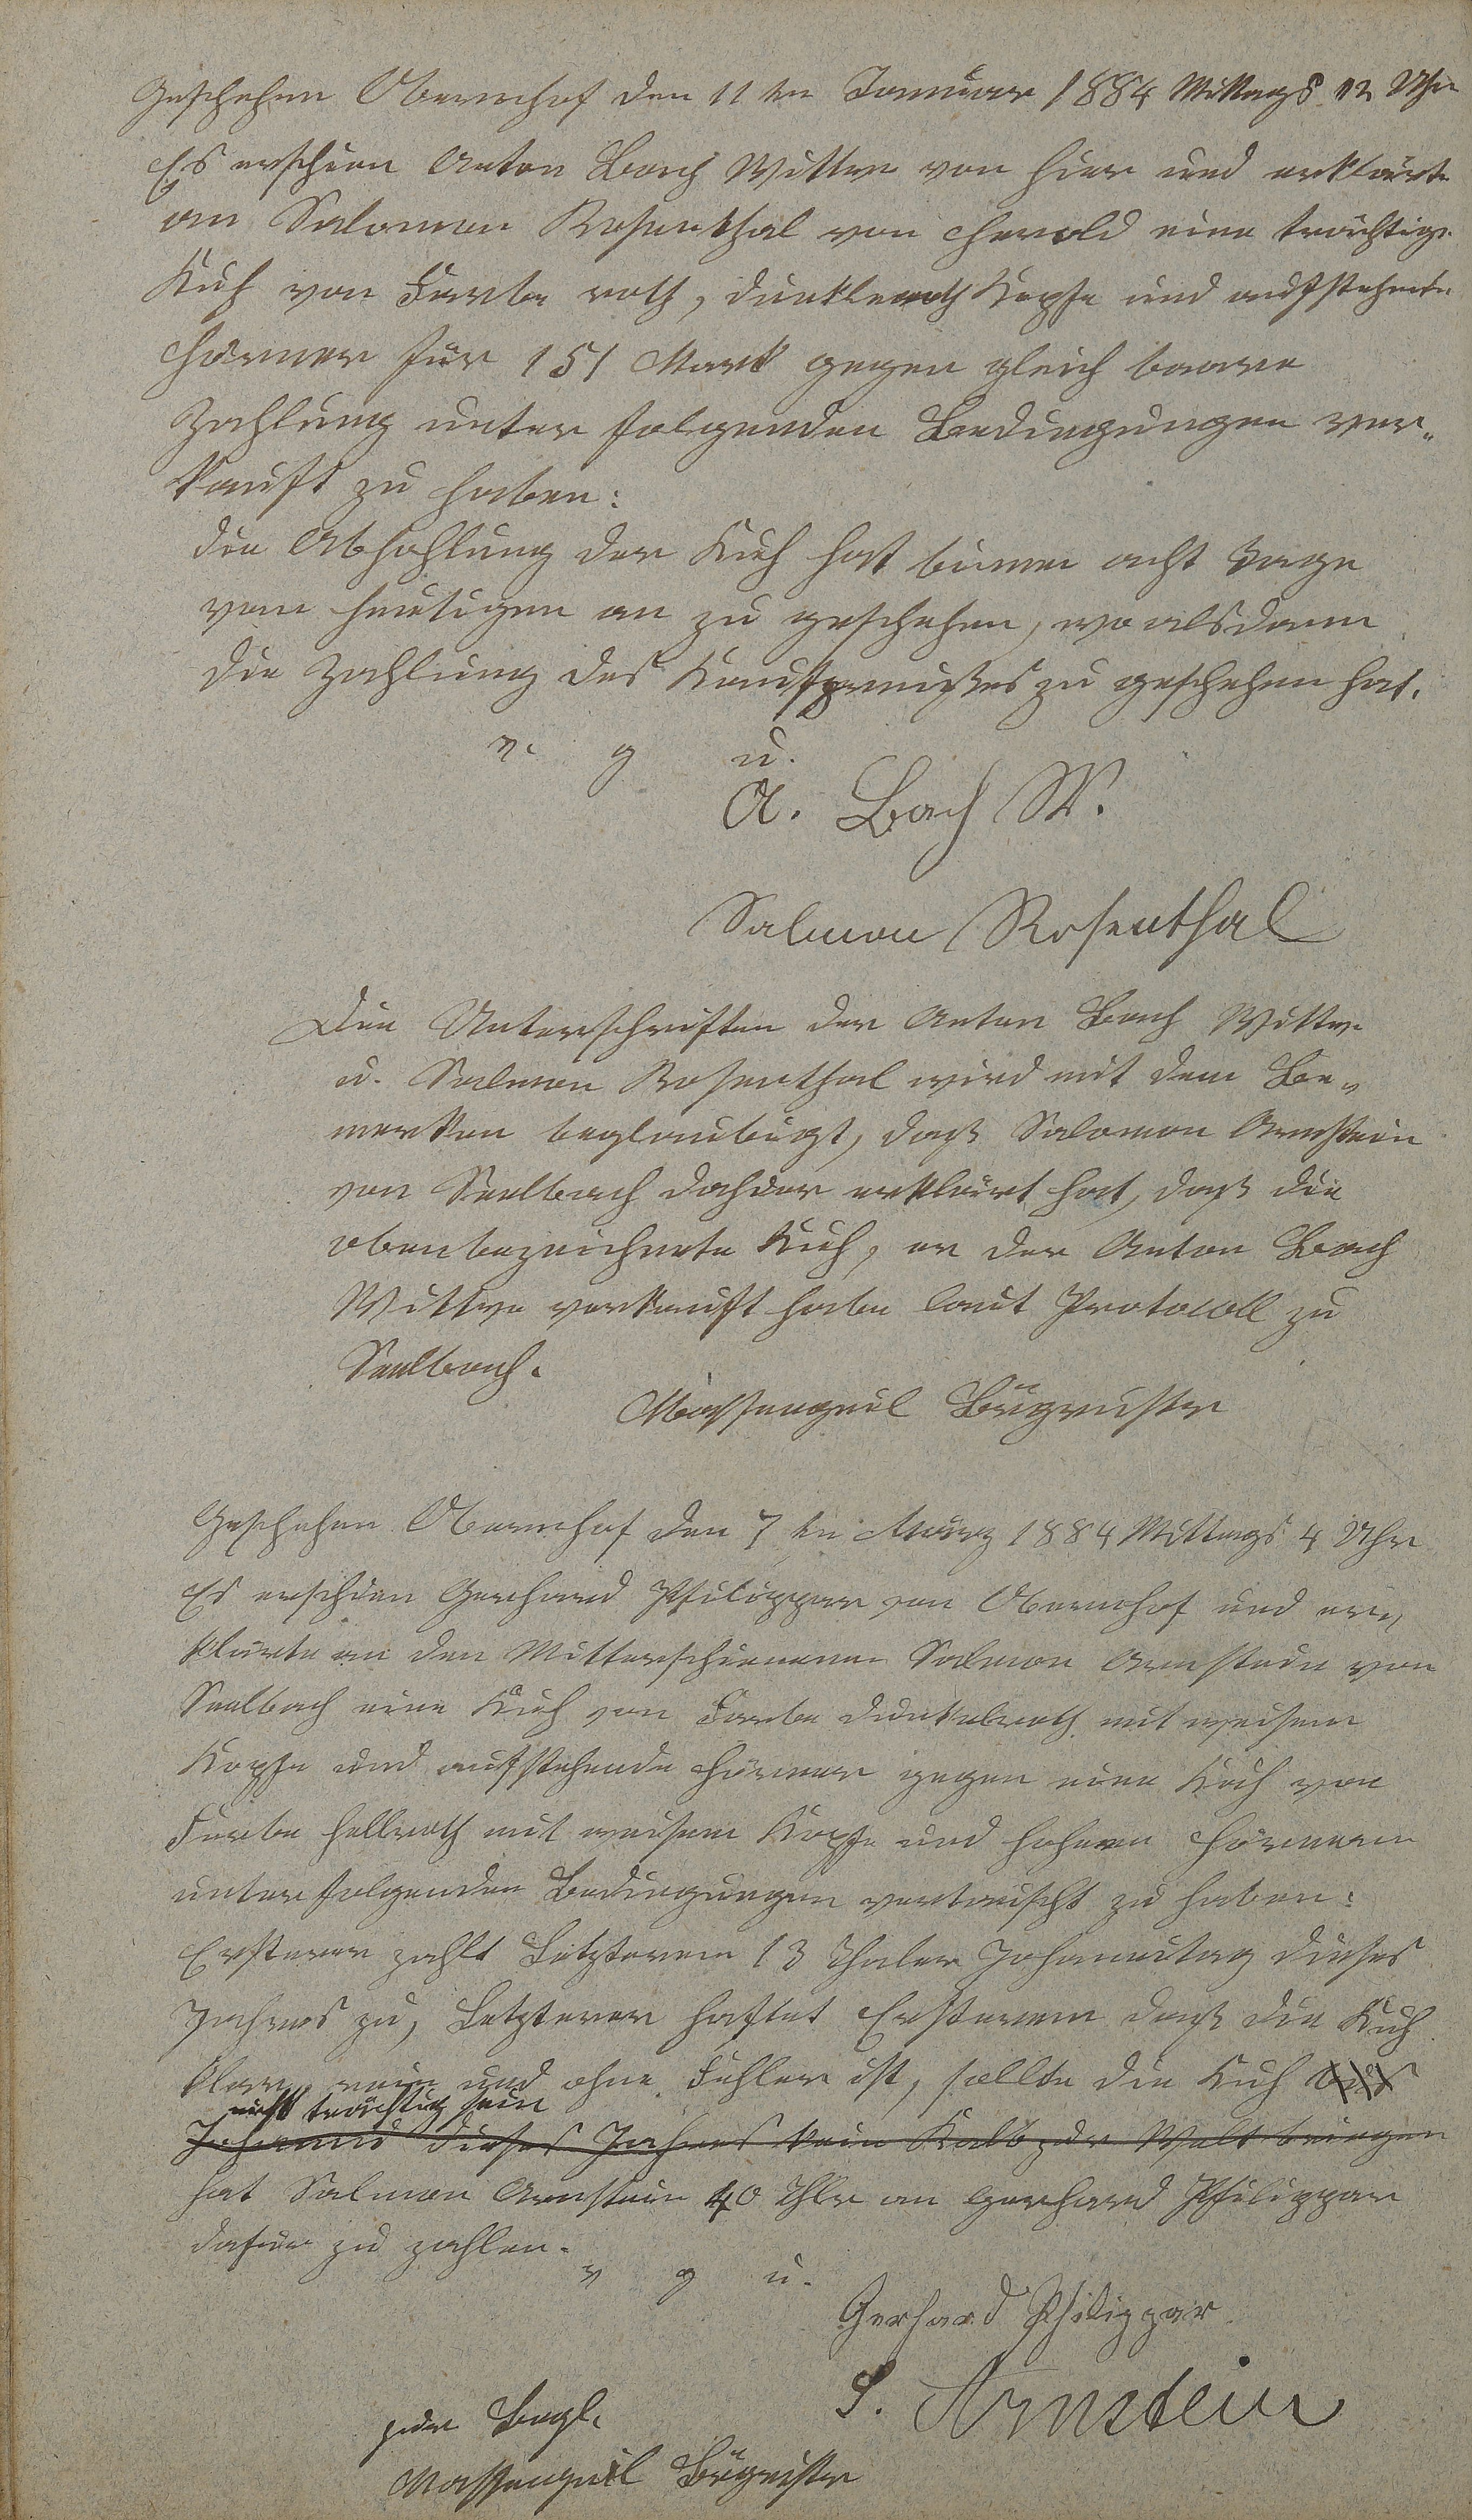 Geschehen Obernhof den 11ten Januar 1884 Mittags 12 Uhr
Es erschien Anton Bach Wittwe von hier und erklärte
an Salomon Rosenthal von Herold eine trächtige
Kuh von Farbe roth, dunkleroth Kopfe und aufstehende
Hörner für 151 Mark gegen gleich baare
Zahlung unter folgenden Bedingungen ver„
kauft zu haben:
die Abhohlung der Kuh hat binnen acht Tage
vom heutigen an zu geschehen, wo alsdann
die Zahlung des Kaufpreises zu geschehen hat.
v. g u.
A. Bach W.
Salmon Rosenthal
Die Unterschriften der Anton Bach Wittwe
u. Salmon Rosenthal wird mit dem Be„
merken beglaubigt, daß Salomon Arnstein
von Seelbach dahier erklärt hat, daß die
obenbezeichnete Kuh, er der Anton Bach
Wittwe verkauft habe laut Protocoll zu
Seelbach.
Massengeil Bürgmstr
Geschehen Obernhof den 7ten März 1884 Mittags 4 Uhr
Es erschien Gerhard Philippar von Obernhof und er„
klärte an den Mitterschienenen Salmon Arnstein von
Seelbach eine Kuh von Farbe dunkelroth mit weisem
Kopfe und aufstehende Hörner gegen eine Kuh von
Farbe hellroth mit weisem Kopfe und hohen Hörnern
unter folgenden Bedingungen vertauscht zu haben:
Ersterer zahlt Letzterem 13 Thaler Johannitag dieses
Jahres zu, Letzterer haftet Ersterem daß die Kuh
klar, rein und ohne Fehler ist, sollte die Kuh bis
nicht trächtig sein
Johanni dieses Jahres kein Kalb zur Welt bringen
hat Salmon Arnstein 40 Thlr an Gerhard Philippar
dafür zu zahlen.
v g u.
Gerhard Philippar
S. Arnstein
zur Begl.
Massengeil Bürgmstr